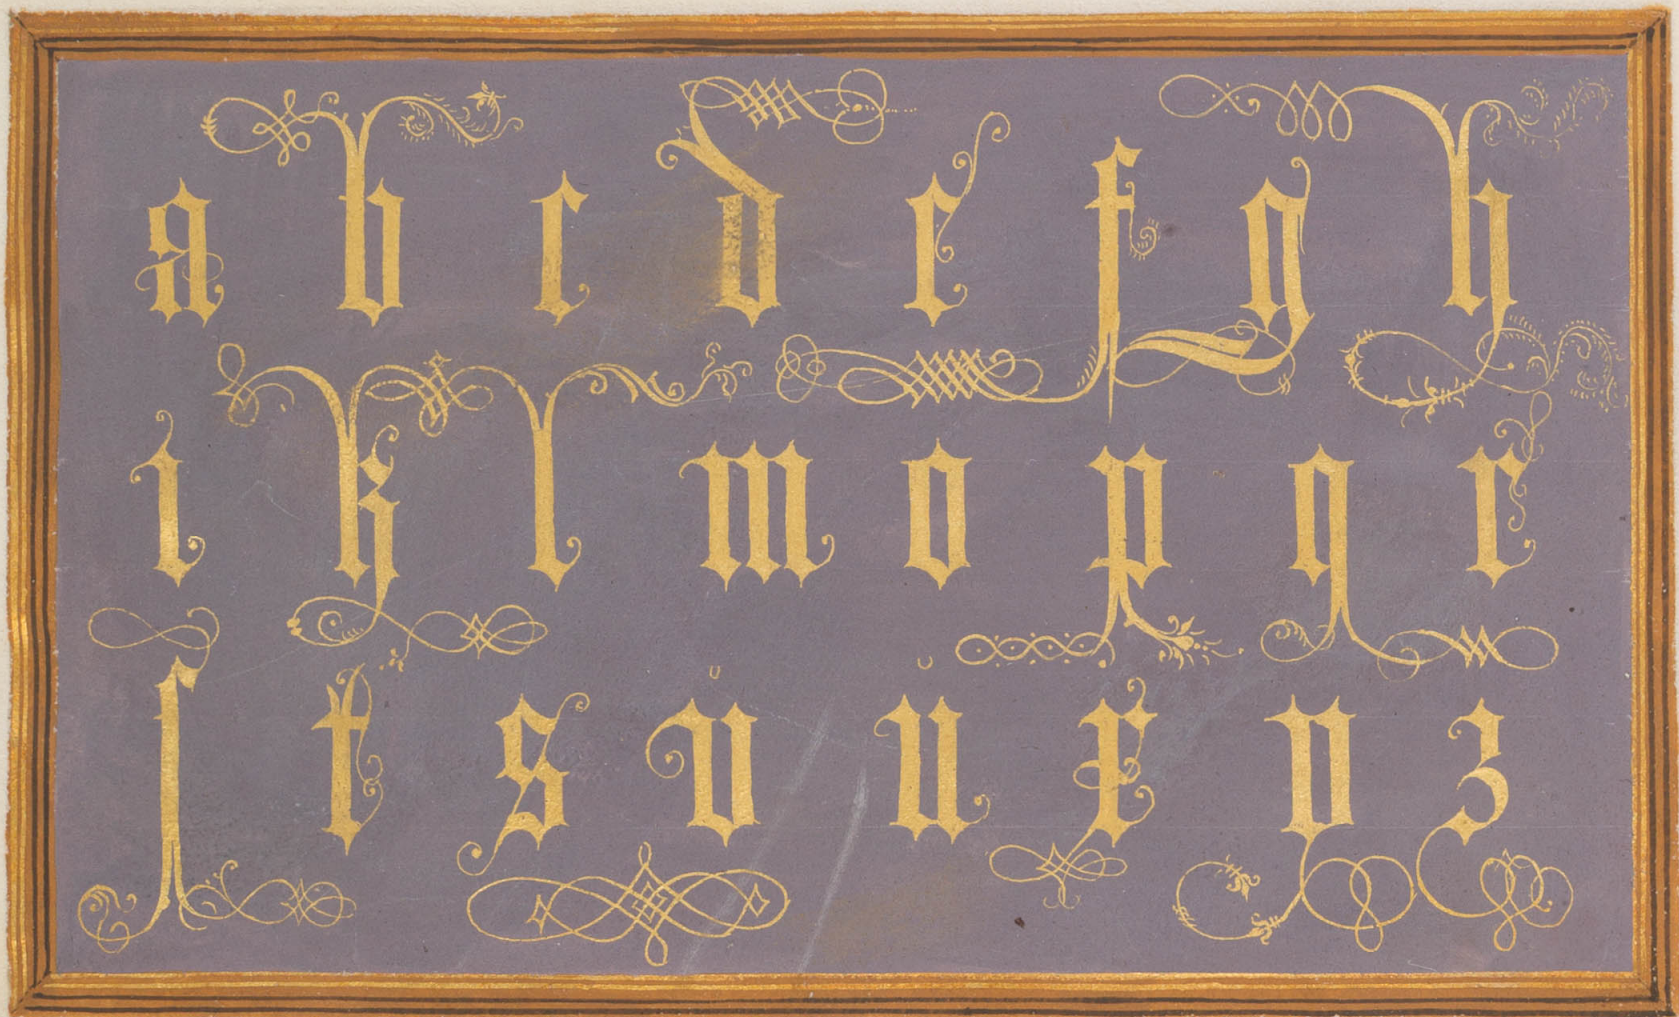 a b c d e f g h
i k l m o p q r
ſ t s v u x y z